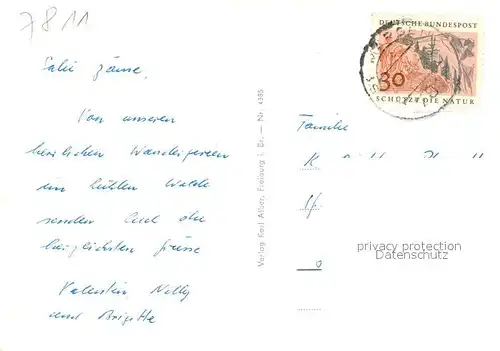 7811
DEUTSCHE BUNDESPOST
30
SCHÜTZT DIE NATUR
Von unseren
herrlichen Wanderferien
im kühlen Walde
senden Euch die
herzlichsten Grüsse
Valentin, Nelly
und Brigitte
Verlag Karl Alber, Freiburg i. Br. — Nr. 4385
Familie
privacy protection
Datenschutz